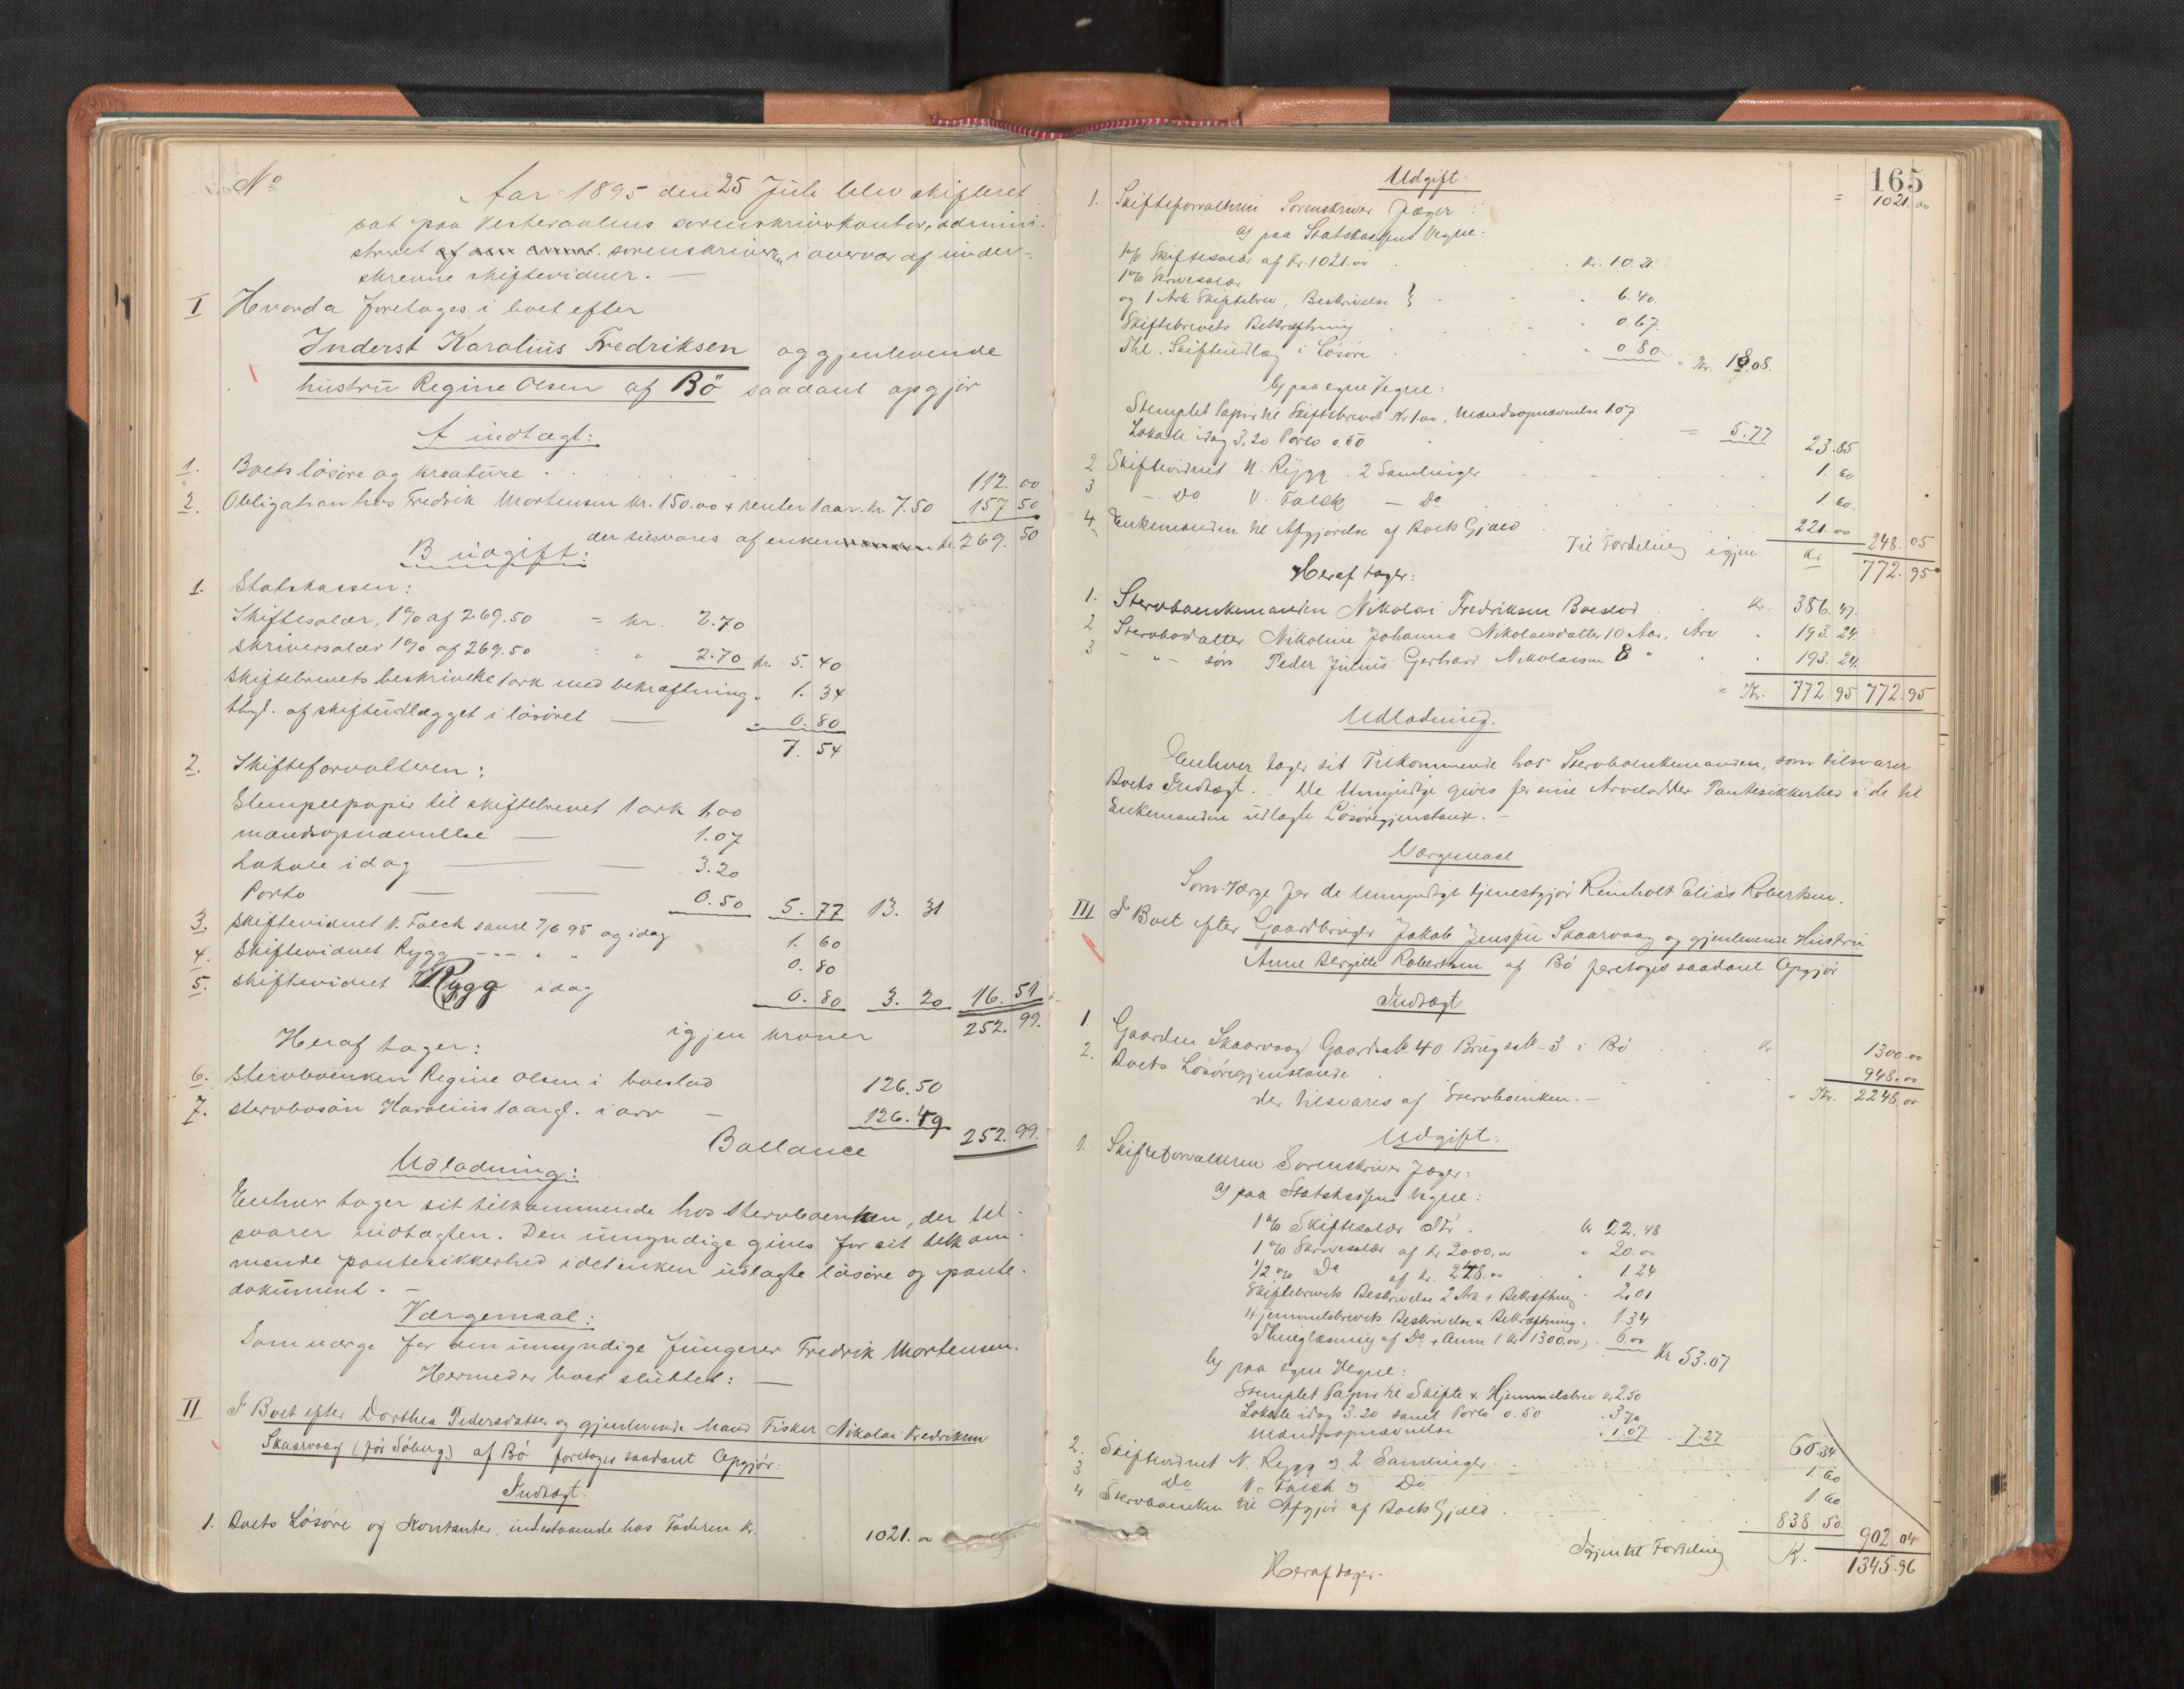 No
Aar 1895 den 25 Juli blev skifteret
sat paa Vesteraalens sorenskriverkontor, admini-
streret af den const. sorenskriveren i overvær af under-
skrevne skiftevidner. —
I Hvorda foretages i boet efter
Inderst Karolius Fredriksen og gjenlevende
hustru Regine Olsen af Bö saadant opgjör
A indtægt:
1. Boets lösöre og kreature 112.00
2. Obligation hos Fredrik Mortensen kr. 150.00 + renter 1 aar. kr. 7.50 157 50
der tilsvares af enken kr. 269. 50
B udgift:
1. Statskassen:
Skiftesalær, 1% af 269.50 = kr. 2.70
skriversalær 1% af 269.50 " " 2.70 kr. 5. 40
skiftebrevets beskrivelse 1 ark med bekræftning " 1. 34
thgl. af skifteudlægget i lösöret — " 0. 80
7. 54
2. Skifteforvalteren:
Stempelpapir til skiftebrevet 1 ark 1,00
mandsopnævnelse — 1.07
Lokale idag — — 3.20
Porto — — 0.50 5. 77 13. 31
3. skiftevidnet V. Falck samt 7/6 95 og idag 1. 60
4. Skiftevidnet Rygg -"- " " 0. 80
5. skiftevidnet N. Rygg idag 0. 80 3. 20 16. 51
igjen kroner 252. 99.
Heraf tager:
6. Stervboenken Regine Olsen i boeslod 126.50
7. stervbosön Karolius 1 aargl. i arv — 126.49
Ballance 252. 99.
Udlodning:
Enhver tager sit tilkommende hos stervboenken, der til-
svarer indtægten. Den umyndige gives for sit tilkom-
mende pantesikkerhed i det enken udlagte lösöre og pante-
dokument. —
Værgemaal:
Som værge for den umyndige fungerer Fredrik Mortensen.
Hermed er boet sluttet: —
II I Boet efter Dorthea Pedersdatter og gjenlevende Mand Fisker Nikolai Fredriksen
Skaarvaag (för Söberg) af Bö foretages saadant Opgjör:
Indtægt.
1. Boets Lösöre og Kontanter, indestaaende hos Faderen kr. 1021.00
165
Udgift. = 1021.00
1. Skifteforvalteren Sorenskriver Jæger:
a) paa Statskassens Vegne:
1% Skiftesalær af Kr. 1021.00 Kr. 10.21
1% Skrivesalær
og 1 Ark Skiftebrev, Beskrivelse } " 6.40.
Skiftebrevets Bekræftning " 0.67.
Thl. Skifteudlæg i Lösöre " 0.80 = Kr. 18.08.
b) paa egne Vegne:
Stemplet Papir til Skiftebrevet Kr 1.00, Mandsopnævnelse 1.07
Lokale idag 3.20 Porto 0.50 = 5.77 23.85
2 Skiftevidnet N. Rygg. 2 Samlinger 1. 60
3 - Do V. Falck — Do 1 60.
4. Enkemanden til Afgjörelse af Boets Gjæld 221.00 248. 05
Til Fordeling igjen Kr 772. 95
Heraf tager:
1. Stervboenkemanden Nikolai Fredriksen Boeslod Kr. 386. 47.
2 Stervbodatter Nikoline Johanna Nikolaisdatter 10 Aar, Arv " 193. 24.
3 - " - sön Peder Julius Gerhard Nikolaisen 8 " " 193. 24.
= Kr. 772. 95 772. 95
Udlodning.
Enhver tager sit Tilkommende hos Stervboenkemanden, som tilsvarer
Boets Indtægt. De Umyndige gives for sine Arvelodder Pantesikkerhed i de til
Enkemanden udlagte Lösöregjenstande. —
Værgemaal
Som Værge for de Umyndige tjenestgjör Reinholt Elias Robertsen.
III I Boet efter Gaardbruger Jakob Jenssen Skaarvaag og gjenlevende Hustru
Anne Bergitte Robertsen af Bö foretages saadant Opgjör
Indtægt
1 Gaarden Skaarvaag Gaards No 40 Brugs No 3 i Bö Kr 1300.00
2. Boets Lösöregjenstande 948.00
der tilsvares af Stervboenken. — " Kr. 2248.00
Udgift.
1. Skifteforvalteren Sorenskriver Jæger:
a) paa Statskassens Vegne:
1% Skiftesalær Kr. Kr 22.48
1% Skrivesalær af kr 2000,00 " 20.00
1/2 % Do af kr. 248.00 " 1 24
Skiftebrevets Beskrivelse 2 Ark + Bekræftning " 2.01
Hjemmelsbrevets Beskrivelse & Bekræftning " 1.34
Thinglæsning af Do + Anm (kr 1300,00) " 6.00 Kr 53.07
b) paa egne Vegne:
Stemplet Papir til Skifte & Hjemmelsbrev kr 2.50
Lokale idag 3.20 samt Porto 0.50 " 3.70
Mandsopnævnelse " 1.07 - 7.27 60.34
2. Skiftevidnet N. Rygg og 2 Samlinger 1.60
3 Do V. Falck og Do 1 60
4 Stervboenken til Afgjör af Boets Gjæld 838. 50. 902 04
Igjen til Fordeling Kr. 1345.96
Heraf tager.